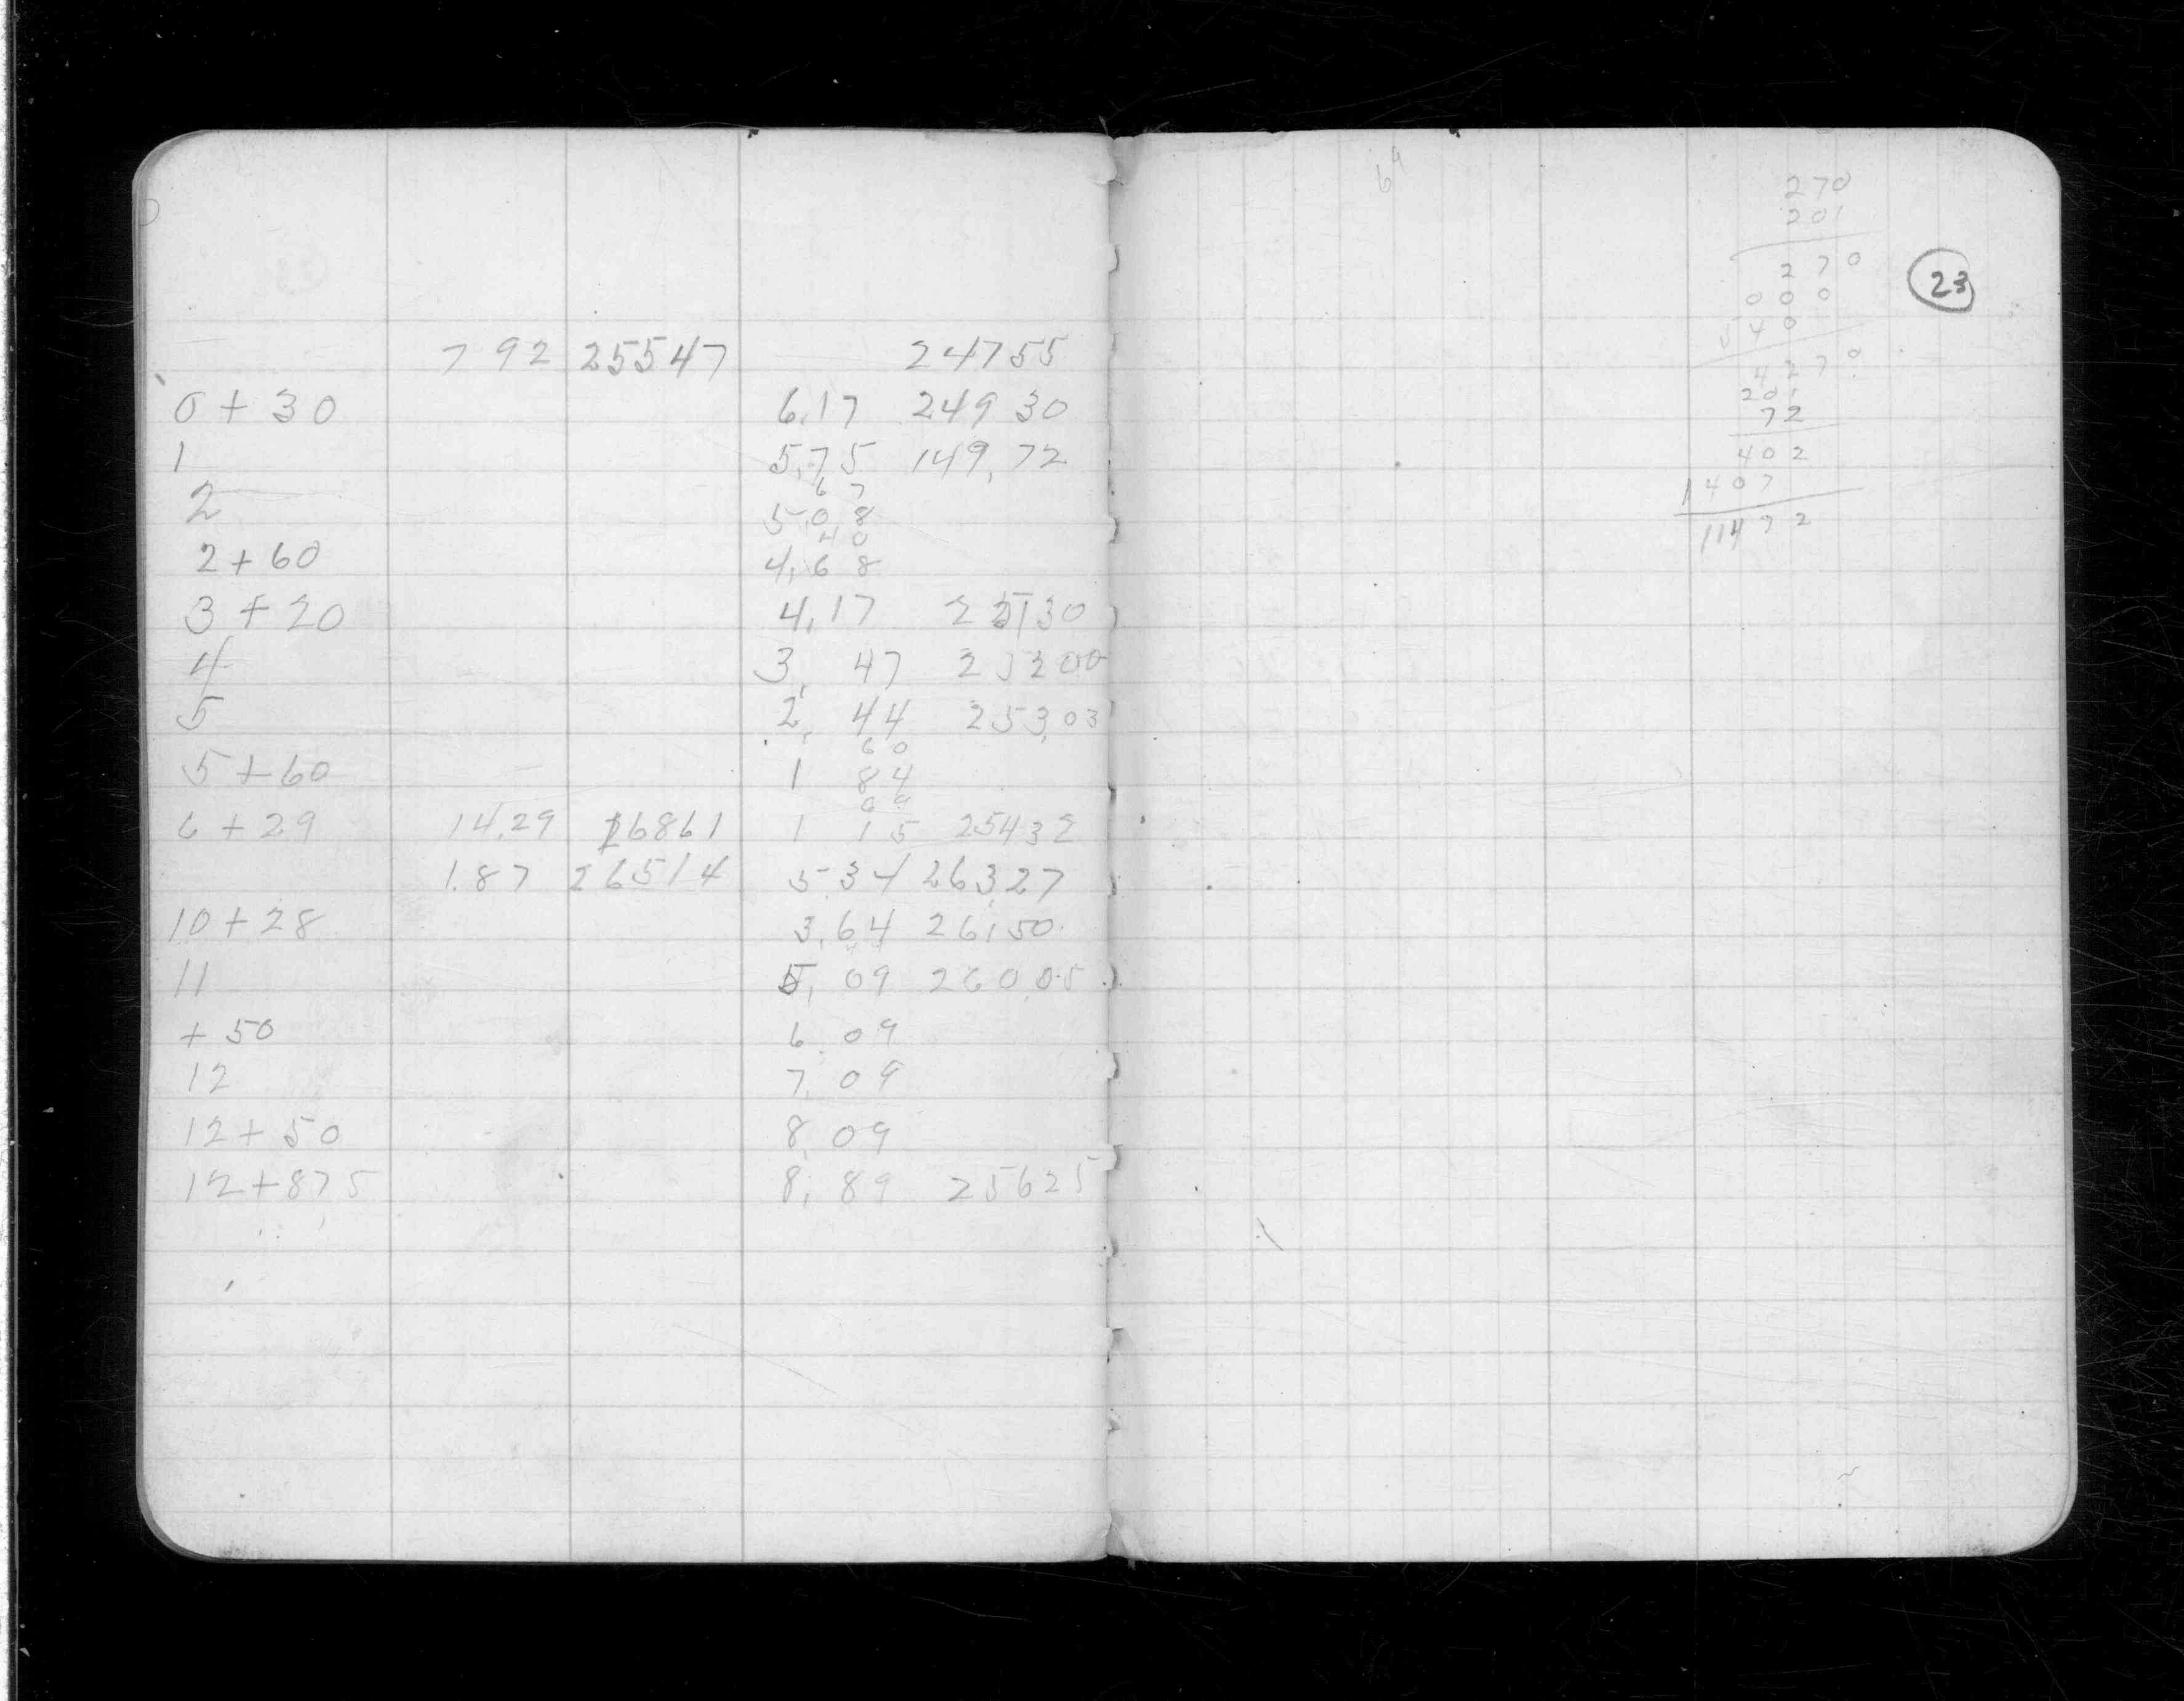 7 92 25547 24755
0 + 30 6.17 249 30
1 5.75 149.72
6 7
2 5.0 8
4 0
2 + 60 4.6 8
3 + 20 4.17 25130
4 3. 47 25200
5 2. 44 253.03
6 0
5 + 60 1 84
6 9
6 + 29 14.29 26861 1 15 25432
1.87 26514 5 34 26327
10 + 28 3.64 26150
11 5. 09 260.05
+ 50 6. 09
12 7. 09
12 + 50 8. 09
12 + 875 8. 89 25625
69
270
201
270
000
540
4270
201
72
402
1407
11472
23